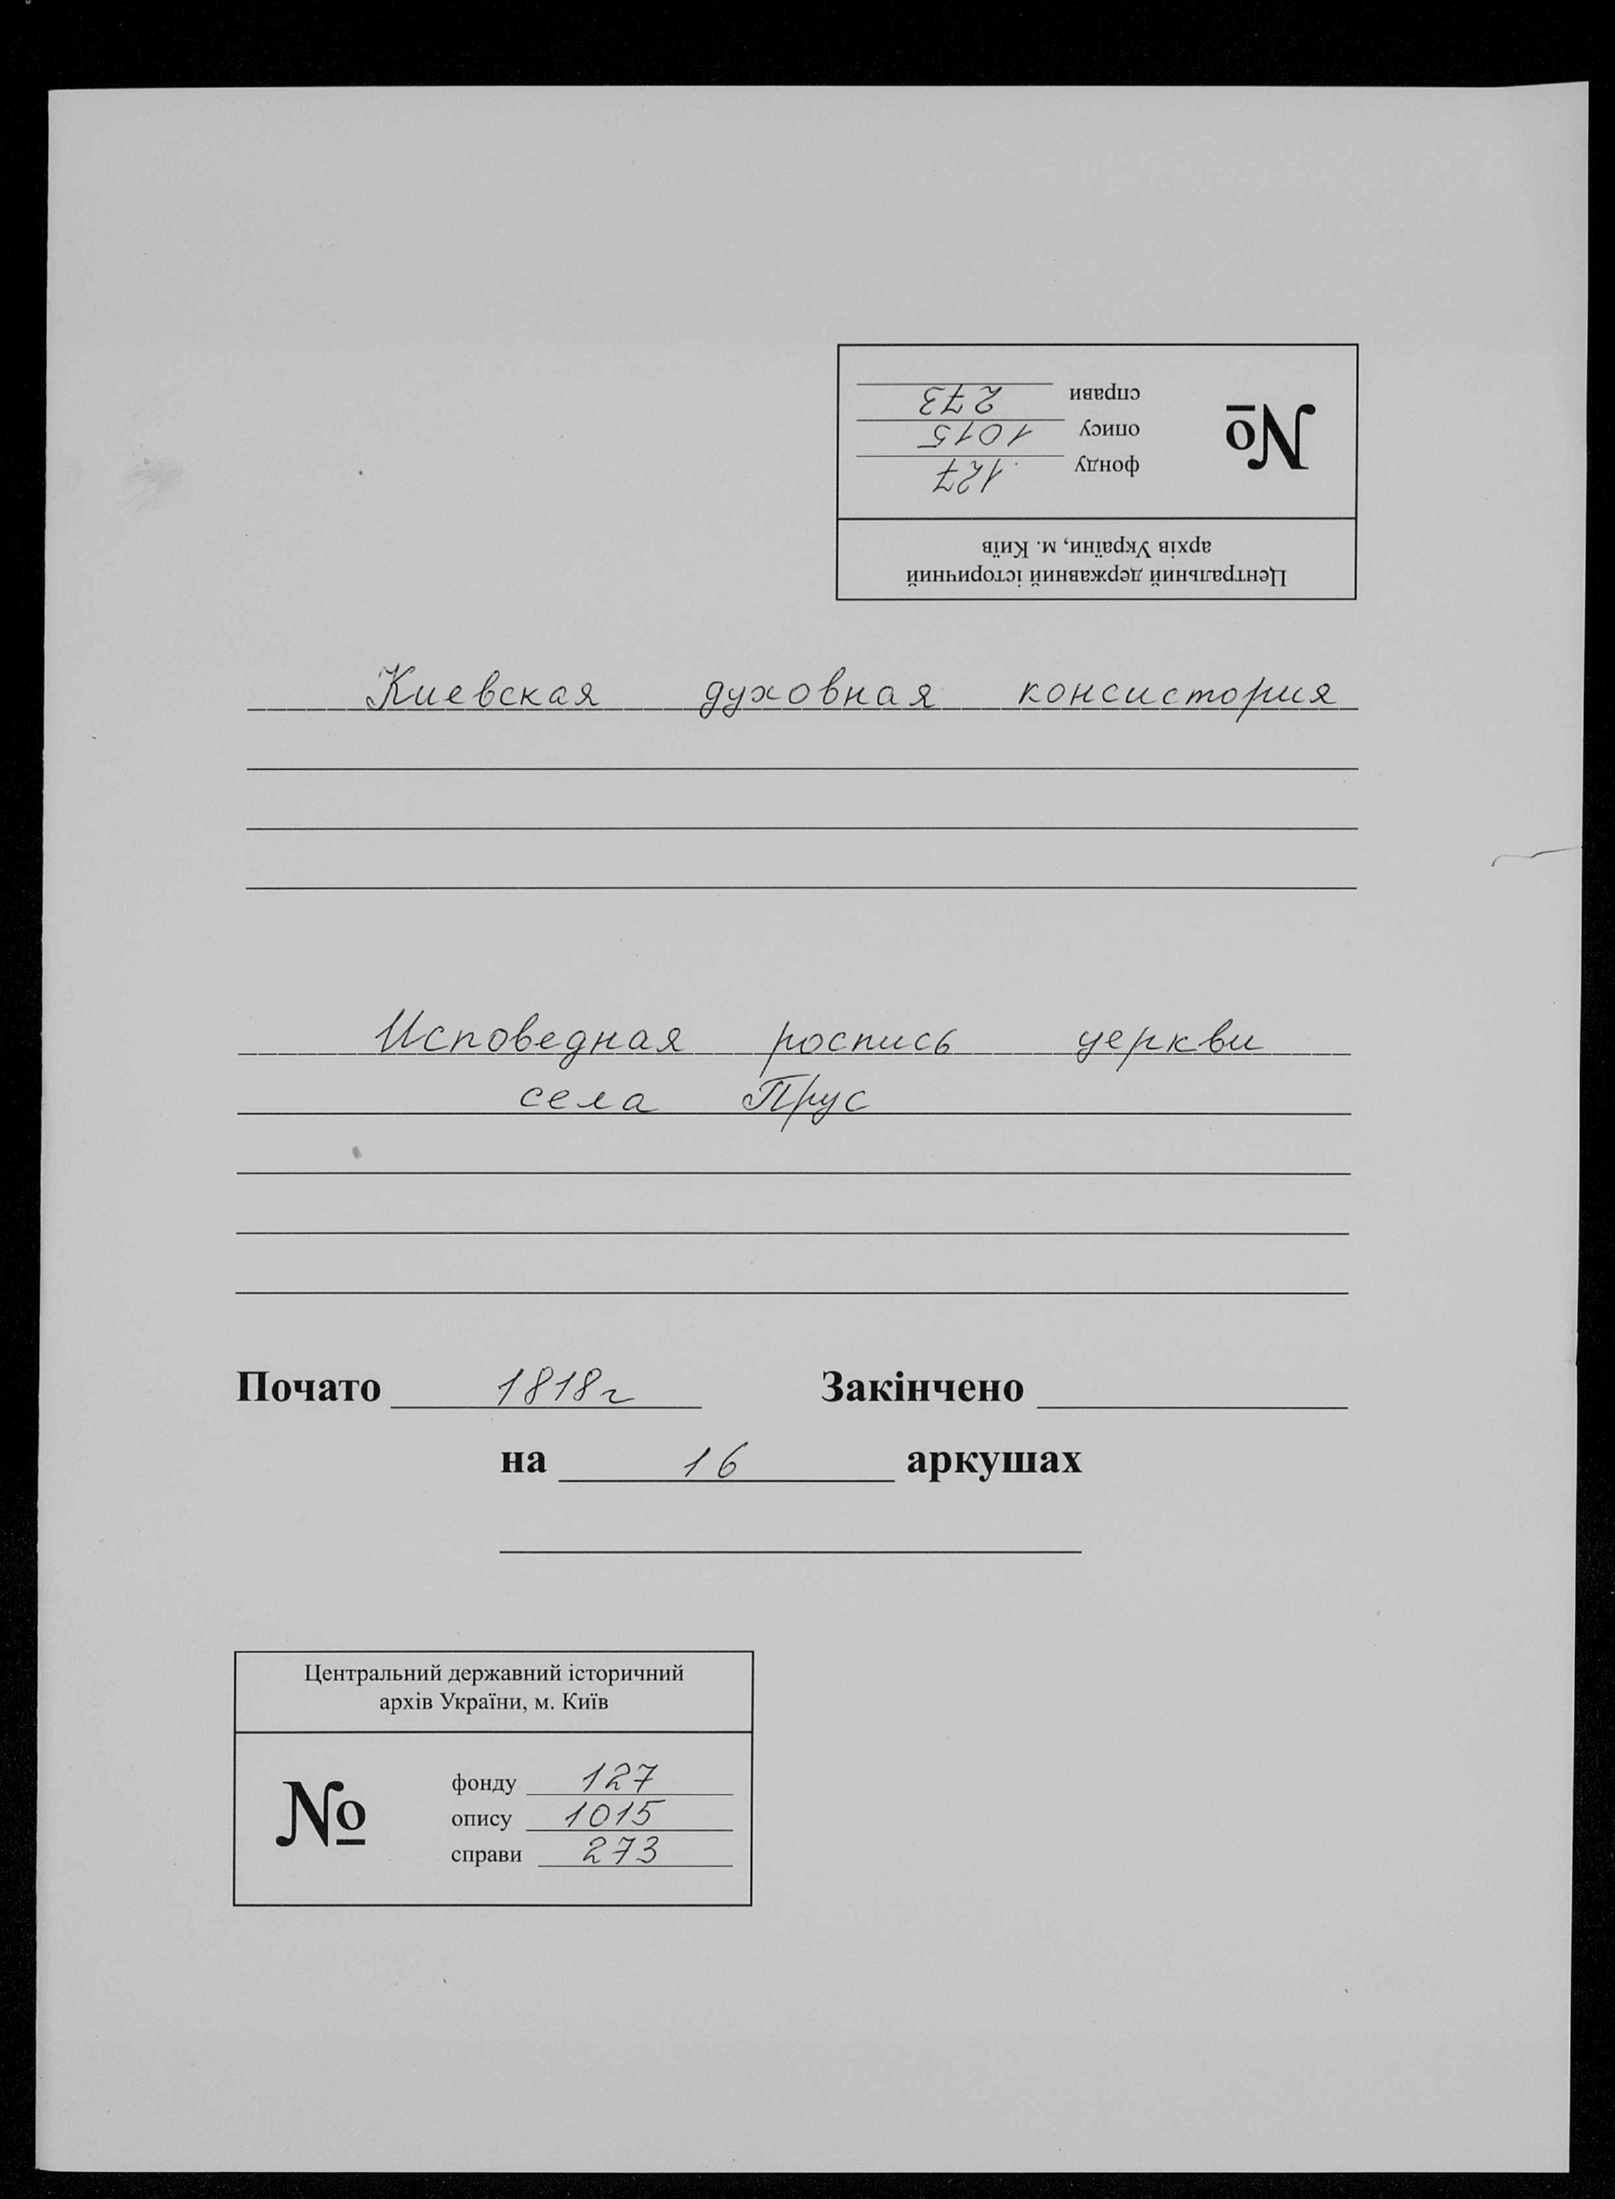 Центральний державний історичний
архів України, м. Київ
№
фонду 127
опису 1015
справи 273
Киевская духовная консистория
Исповедная роспись церкви
села Прус
Почато 1818г Закінчено
на 16 аркушах
Центральний державний історичний
архів України, м. Київ
№
фонду 127
опису 1015
справи 273